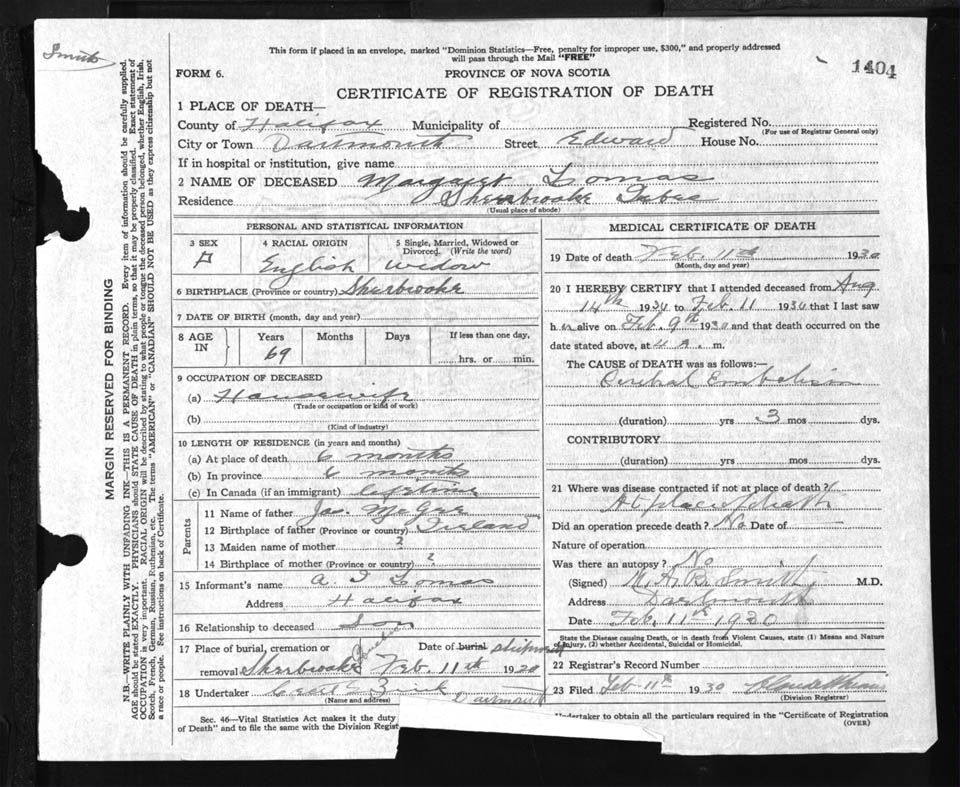 This form if placed in an envelope, marked "Dominion Statistics—Free, penalty for improper use, $300," and properly addressed
will pass through the Mail "FREE"
1404
Smith
FORM 6.
PROVINCE OF NOVA SCOTIA
CERTIFICATE OF REGISTRATION OF DEATH
1 PLACE OF DEATH—
County of Halifax Municipality of Registered No.
(For use of Registrar General only)
City or Town Dartmouth Street Edward House No.
If in hospital or institution, give name
2 NAME OF DECEASED Margaret Lomas
Residence Sherbrooke
(Usual place of abode)
PERSONAL AND STATISTICAL INFORMATION
3 SEX
F
4 RACIAL ORIGIN
English
5 Single, Married, Widowed or
Divorced. (Write the word)
widow
6 BIRTHPLACE (Province or country) Sherbrooke
7 DATE OF BIRTH (month, day and year)
8 AGE
IN
Years
69
Months
Days
If less than one day,
hrs. or min.
9 OCCUPATION OF DECEASED
(a) Housewife
(Trade or occupation or kind of work)
(b)
(Kind of industry)
10 LENGTH OF RESIDENCE (in years and months)
(a) At place of death 6 months
(b) In province 6 months
(c) In Canada (if an immigrant) lifetime
Parents
11 Name of father Jas. McGee
12 Birthplace of father (Province or country) Ireland
13 Maiden name of mother ?
14 Birthplace of mother (Province or country) ?
15 Informant's name A Lomas
Address Halifax
16 Relationship to deceased Son
17 Place of burial, cremation or Date of burial shipment
removal Sherbrooke Quebec Feb. 11th 1920
18 Undertaker Zink Dartmouth
(Name and address)
Sec. 46—Vital Statistics Act makes it the duty
of Death" and to file the same with the Division Regist
MEDICAL CERTIFICATE OF DEATH
19 Date of death Feb. 11th 1930
(Month, day and year)
20 I HEREBY CERTIFY that I attended deceased from Aug
14th 1930 to Feb. 11 1930 that I last saw
h er alive on Feb. 9th 1930 and that death occurred on
the date stated above, at 4 a. m.
The CAUSE OF DEATH was as follows:—
Cerebral Embolism
(duration) yrs 3 mos dys.
CONTRIBUTORY
(duration) yrs mos dys.
21 Where was disease contracted if not at place of death?
At place of death
Did an operation precede death? No Date of
Nature of operation
Was there an autopsy? No
(Signed) M. A. B. Smith M.D.
Address Dartmouth
Date Feb. 11th 1930
State the Disease causing Death, or in death from Violent Causes, state (1) Means and Nature
of Injury, (2) whether Accidental, Suicidal or Homicidal.
22 Registrar's Record Number
23 Filed Feb 11th 1930
(Division Registrar)
Undertaker to obtain all the particulars required in the "Certificate of Registration
(OVER)
MARGIN RESERVED FOR BINDING
N.B.—WRITE PLAINLY WITH UNFADING INK—THIS IS A PERMANENT RECORD. Every item of information should be carefully supplied.
AGE should be stated EXACTLY. PHYSICIANS should STATE CAUSE OF DEATH in plain terms, so that it may be properly classified. Exact statement of
OCCUPATION is very important. RACIAL ORIGIN will be described by stating to what people or tongue the deceased person belonged, whether English, Irish,
Scotch, French, German, Russian, Ruthenian, etc. The terms "AMERICAN" or "CANADIAN" SHOULD NOT BE USED as they express citizenship but not
a race or people. See instructions on back of Certificate.